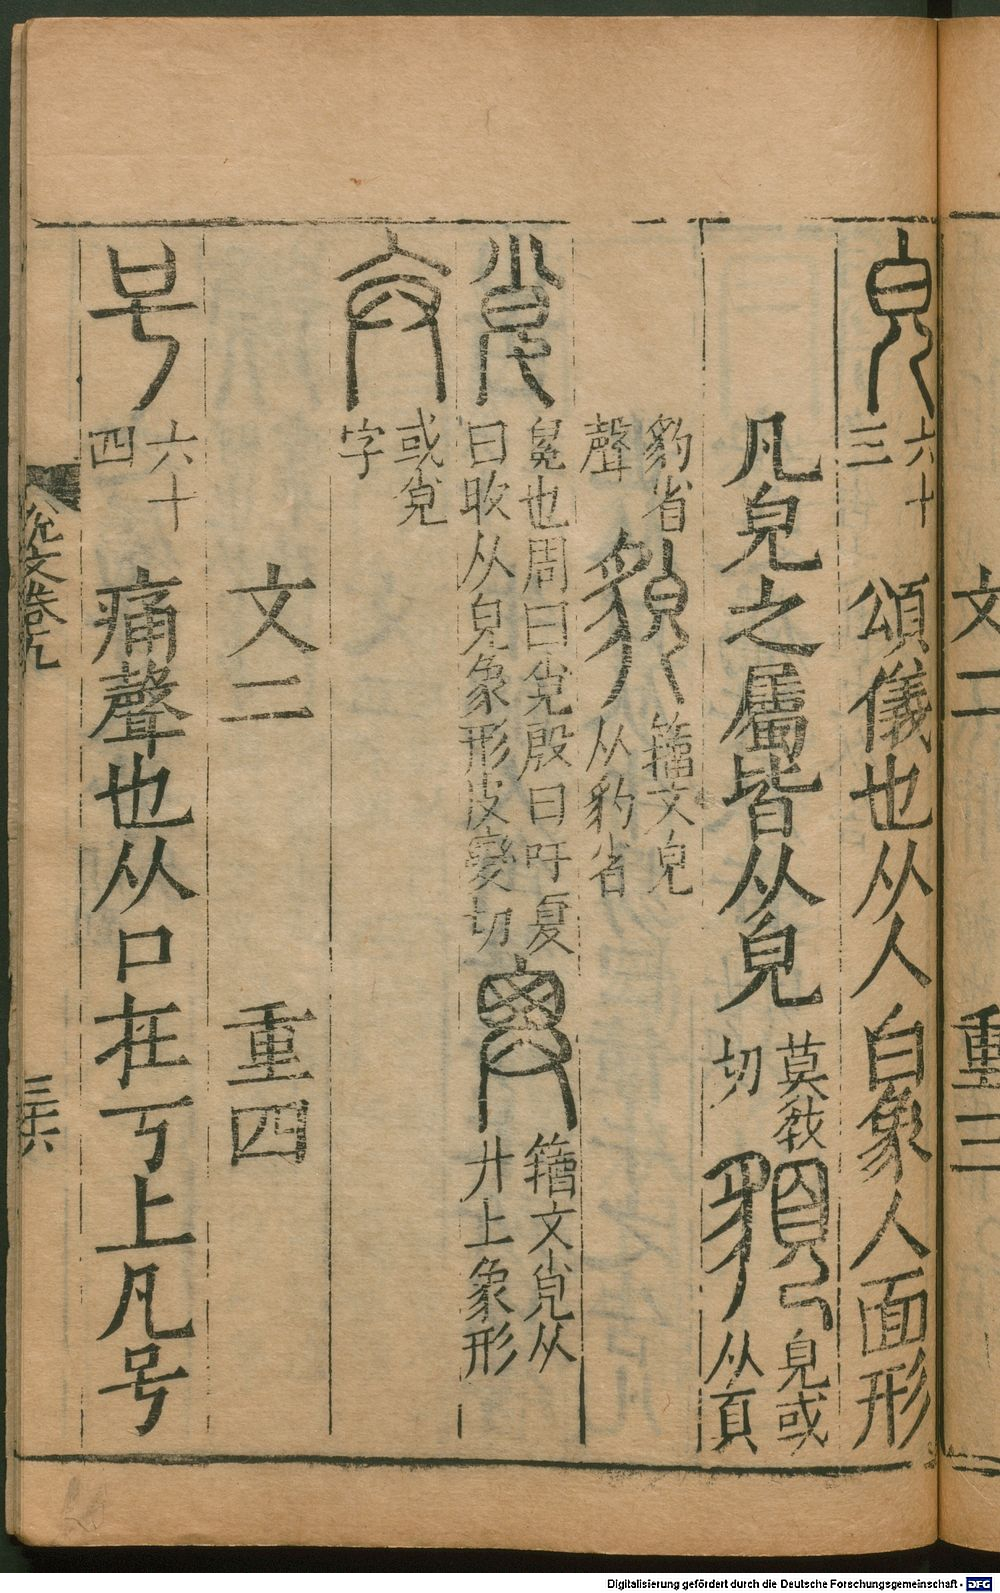 文二 重三
皃 六十三 頌儀也从人白象人面形
凡皃之屬皆从皃 莫敎切 貌 皃或从頁
豹省聲 貌 籒文皃从豹省
覍 冕也周曰覍殷曰吁夏曰收从皃象形皮變切 籒文覍从廾上象形
弁 或覍字
文二 重四
号 六十四 痛聲也从口在丂上凡号
說文卷九 三十六
Digitalisierung gefördert durch die Deutsche Forschungsgemeinschaft - DFG